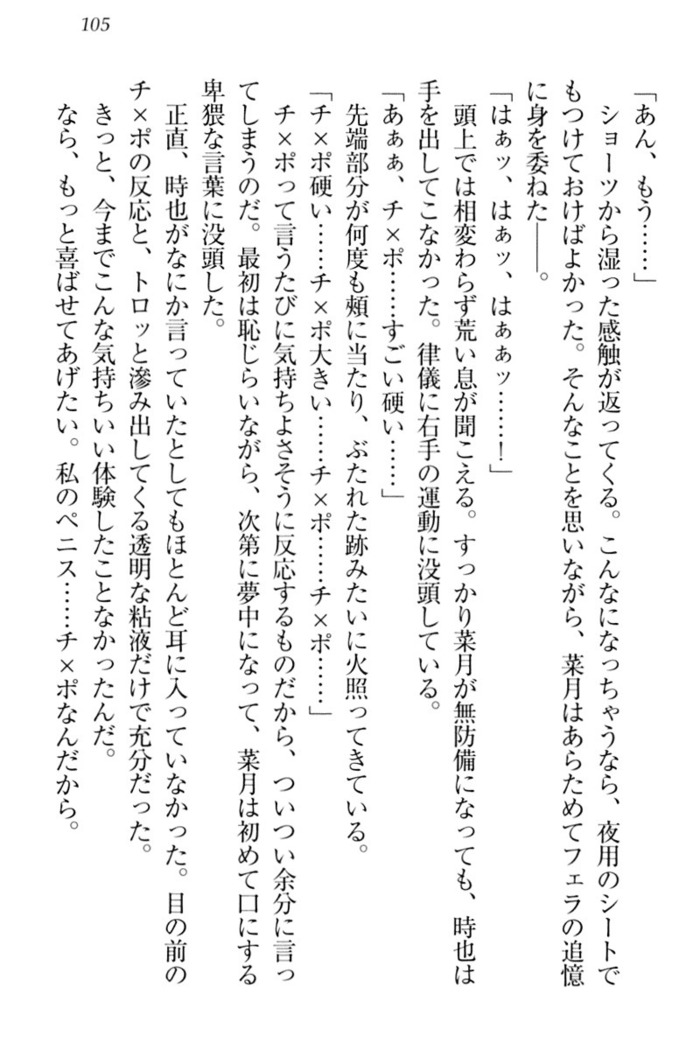 105
「あん、もう……」
　ショーツから湿った感触が返ってくる。こんなになっちゃうなら、夜用のシートで
もつけておけばよかった。そんなことを思いながら、菜月はあらためてフェラの追憶
に身を委ねた――。
「はぁッ、はぁッ、はぁぁッ……！」
　頭上では相変わらず荒い息が聞こえる。すっかり菜月が無防備になっても、時也は
手を出してこなかった。律儀に右手の運動に没頭している。
「あぁぁ、チ×ポ……すごい硬い……」
　先端部分が何度も頬に当たり、ぶたれた跡みたいに火照ってきている。
「チ×ポ硬い……チ×ポ大きい……チ×ポ……チ×ポ……」
　チ×ポって言うたびに気持ちよさそうに反応するものだから、ついつい余分に言っ
てしまうのだ。最初は恥じらいながら、次第に夢中になって、菜月は初めて口にする
卑猥な言葉に没頭した。
　正直、時也がなにか言っていたとしてもほとんど耳に入っていなかった。目の前の
チ×ポの反応と、トロッと滲み出してくる透明な粘液だけで充分だった。
　きっと、今までこんな気持ちいい体験したことなかったんだ。
　なら、もっと喜ばせてあげたい。私のペニス……チ×ポなんだから。